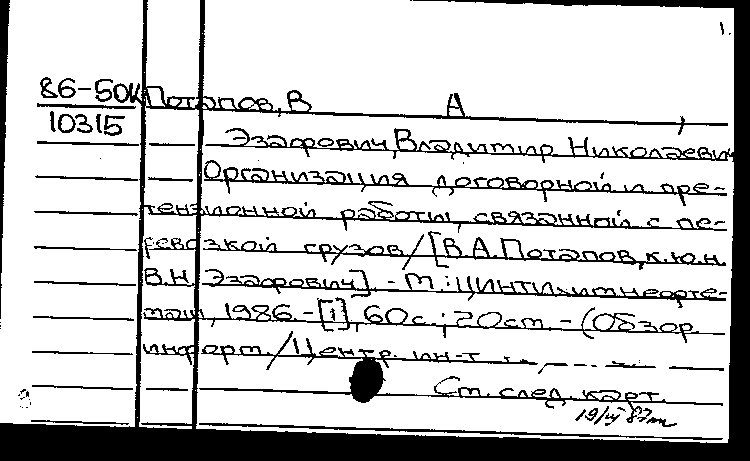 1.
86-50к Потапов, В А ,
10315
Эзафович, Владимир Николаевич
Организация договорной и пре-
тензионной работы, связанной с пе-
ревозкой грузов / [В.А. Потапов, к.ю.н.
В.Н. Эзафович]. - М.: ЦИНТИхимнефте-
маш, 1986. - [1], 60с.; 20см. - (Обзор.
информ. / Центр. ин-т
См. след. карт.